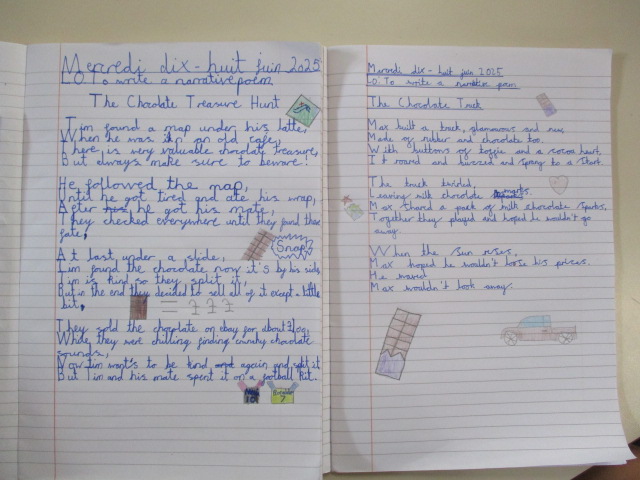 Mercredi dix-huit juin 2025
LO To write a narrative poem
The Chocolate Treasure Hunt
Tim found a map under his latte,
When he was in an old cafe,
There is very valuable chocolay treasure,
But always make sure to beware!
He followed the map,
Until he got tired and ate his wrap,
After he got his mate,
They checked everywhere until they found those
fate!
At last under a slide,
Tim found the chocolate now it's by his side,
Tim is kind so they split it,
But in the end they decided to sell all of it except a little
bit,
Snap
= £££
They sold the chocolate on ebay for about
While they were chilling finding crunchy chocolate
sounds,
Now Tim want's to be kind again and split it
But Tim and his mate spent it on a football kit.
10
7
Mercredi dix-huit juin 2025
LO To write a narrative poem
The Chocolate Truck
Max built a truck, glamourous and new,
Made of rubber and chocolate too.
With buttons of toffie and a cocoa heart,
It roared and and sprang to a start.
The truck twirled,
Leaving milk chocolate marks
Max shared a pack of milk chocolate sparks,
Together they played and hoped he wouldn't go
away.
When the sun rises,
Max hoped he wouldn't his prizes.
He waved
Max wouldn't look away.